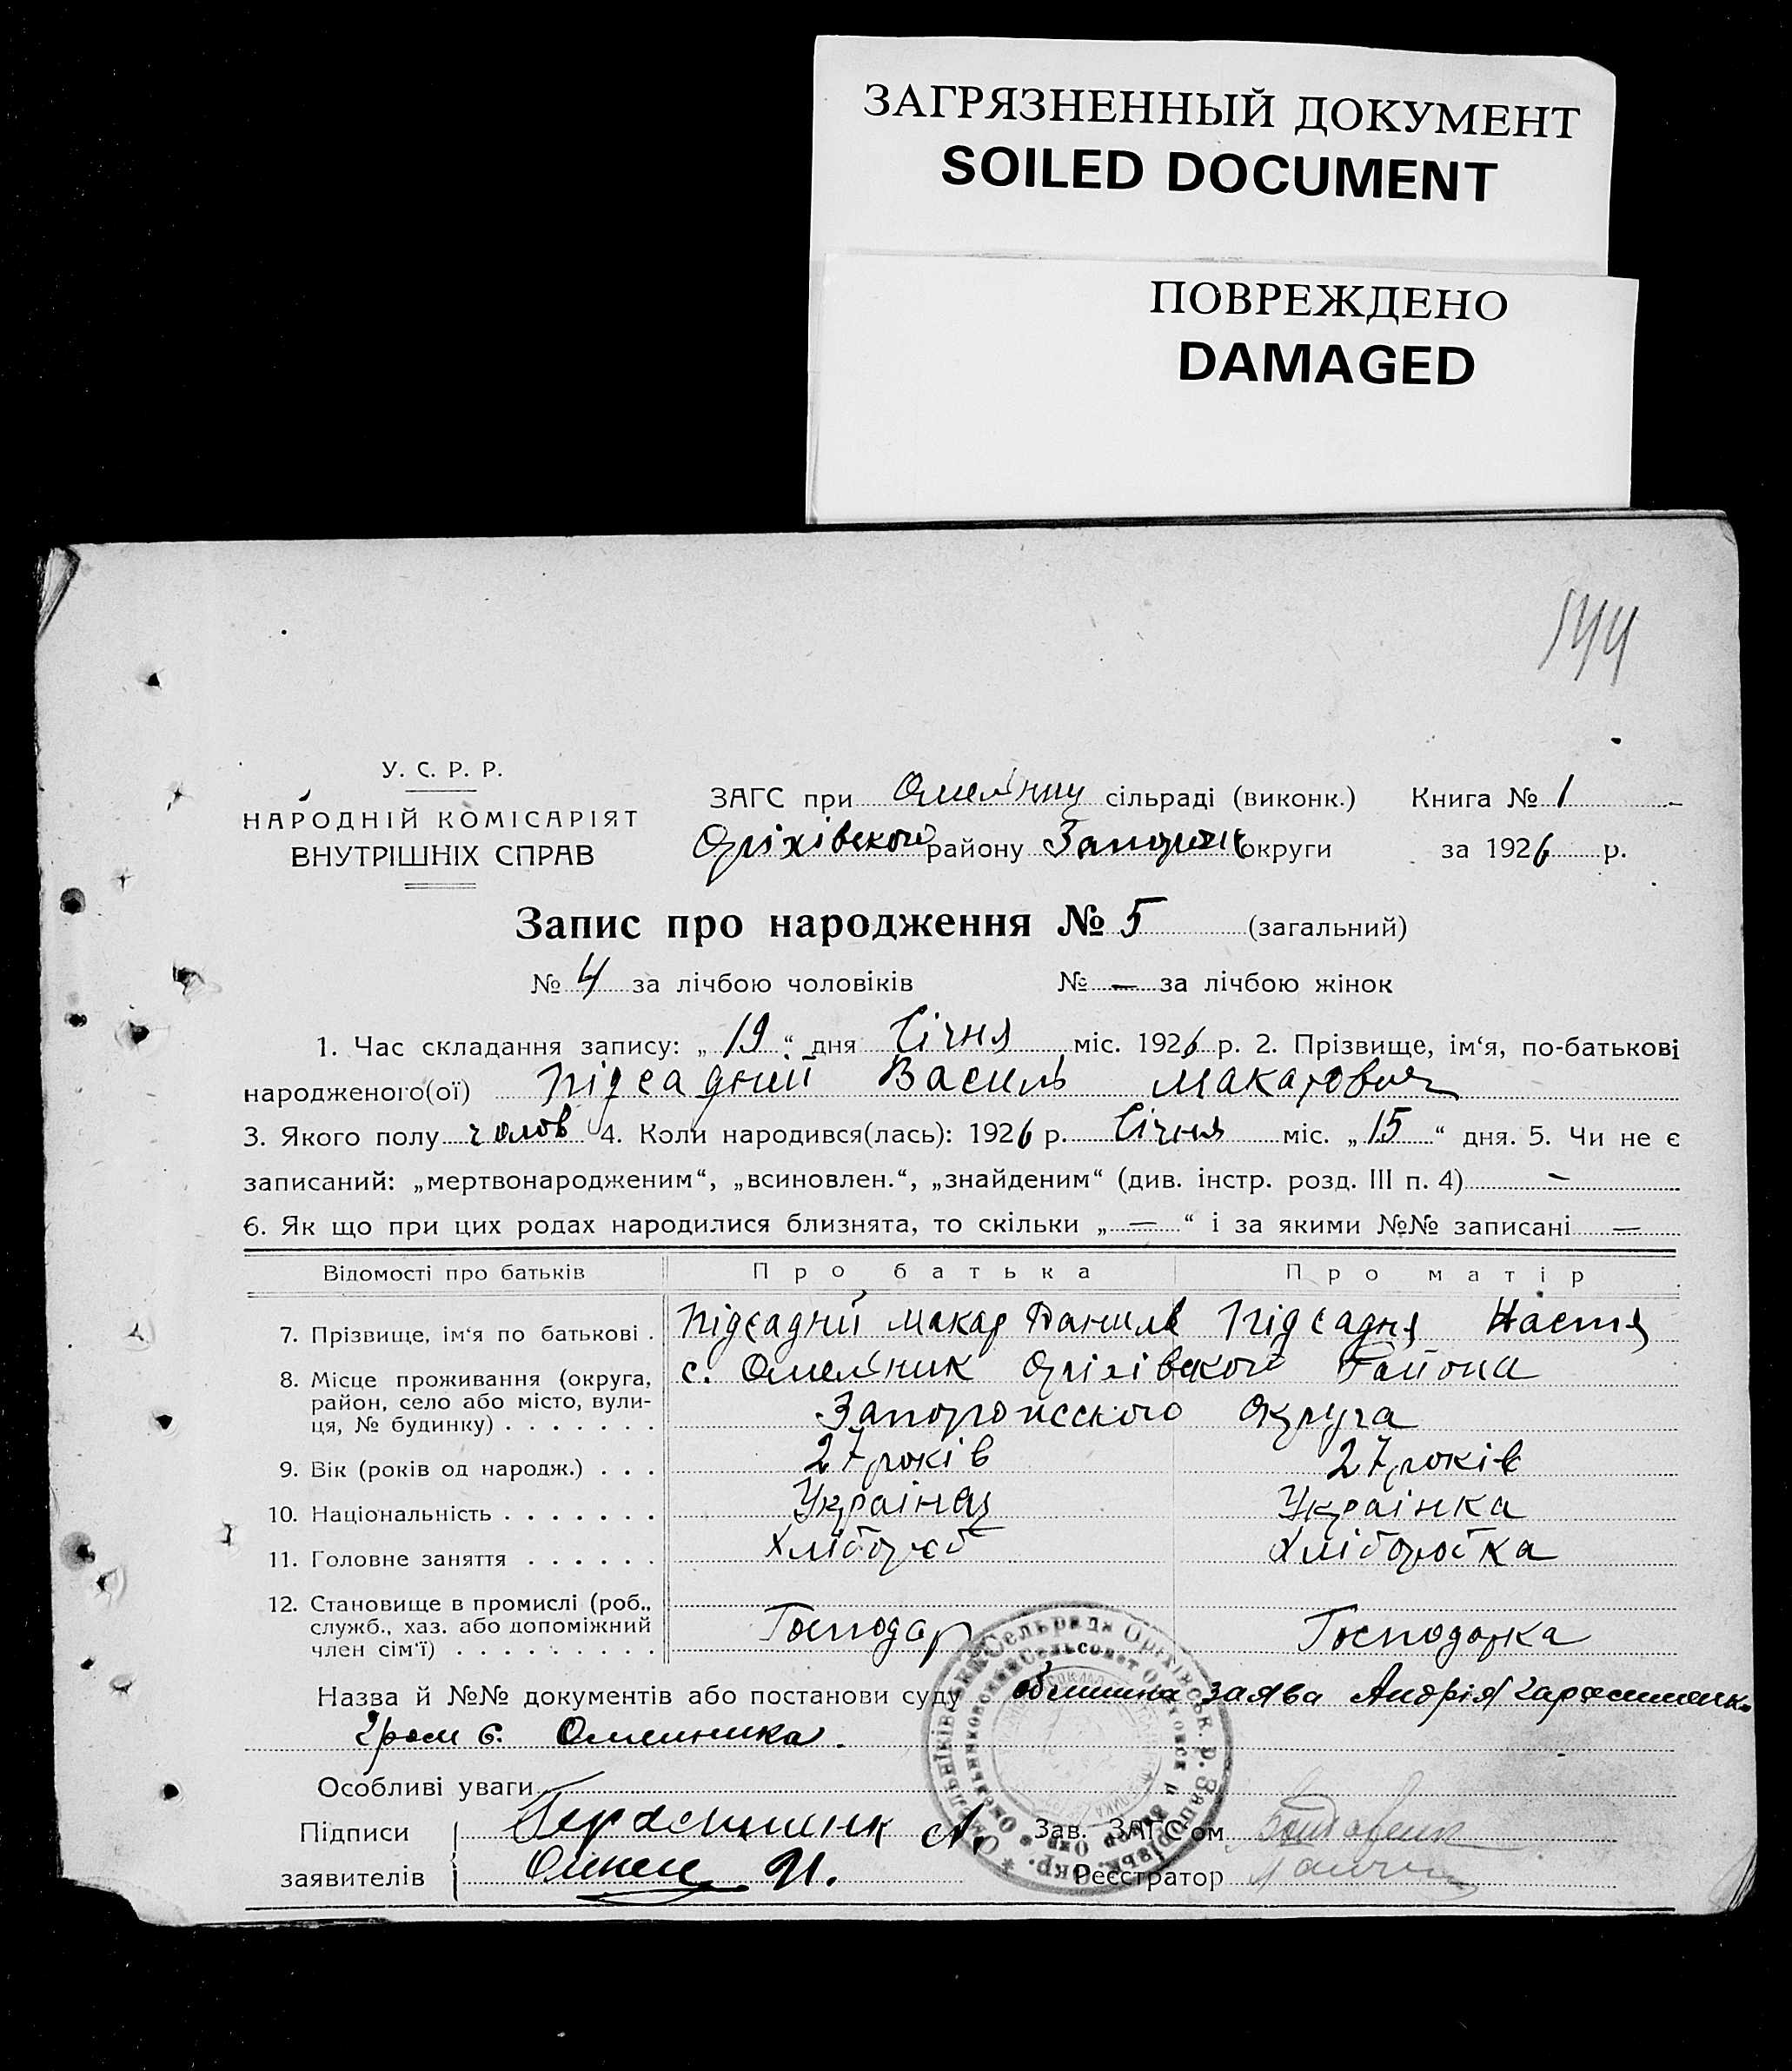 ЗАГРЯЗНЕННЫЙ ДОКУМЕНТ
SOILED DOCUMENT
ПОВРЕЖДЕНО
DAMAGED
144
У. С. Р. Р.
НАРОДНІЙ КОМІСАРІЯТ
ВНУТРІШНІХ СПРАВ
ЗАГС при сільраді (виконк.) Книга № 1
Оріхівского району Запоріж округи за 1926 р.
Запис про народження № 5 (загальний)
№ 4 за лічбою чоловіків № — за лічбою жінок
1. Час складання запису: „ 19 “ дня Січня міс. 1926 р. 2. Прізвище, ім‘я, по-батькові
народженого(ої) Підсадний Василь Макарович
3. Якого полу чолов 4. Коли народився(лась): 1926 р. Січня міс. „ 15 “ дня. 5. Чи не є
записаний: „мертвонародженим“, „всиновлен.“, „знайденим“ (див. інстр. розд. III п. 4) —
6. Як що при цих родах народилися близнята, то скільки „ — “ і за якими №№ записані —
Відомості про батьків Про батька Про матір
7. Прізвище, ім‘я по батькові . Підсадний Макар Данилов Підсадня Настя
8. Місце проживання (округа, район, село або місто, вулиця, № будинку) . . . . . . . с. Омельник Оріхівского Района
Запорожского Округа
9. Вік (років од народж.) . . . 27 років 27 років
10. Національність . . . . . . . Українец Українка
11. Головне заняття . . . . . . Хлібороб Хліборобка
12. Становище в промислі (роб., служб., хаз. або допоміжний член сім‘ї) . . . . . . . . . Господар Господарка
Назва й №№ документів або постанови суду заява Андрія Гарасименк
Гром с. Омельника.
Особливі уваги
Підписи Герасименк А. Зав. ЗАГС‘ом
заявителів И. Реєстратор